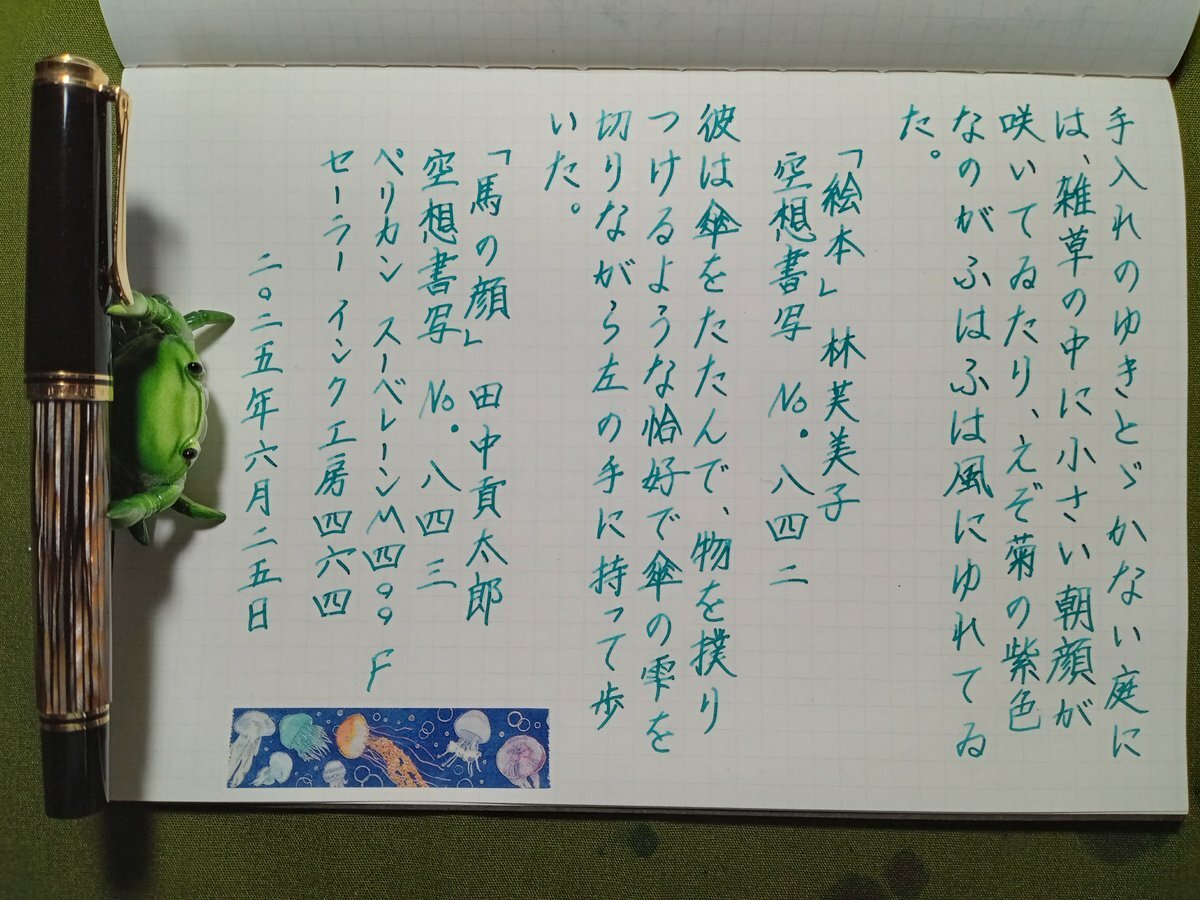 手入れのゆきとゞかない庭に
は、雑草の中に小さい朝顔が
咲いてゐたり、えぞ菊の紫色
なのがふはふは風にゆれてゐ
た。
「絵本」 林芙美子
空想書写 No. 八四二
彼は傘をたたんで、物を撲り
つけるような恰好で傘の雫を
切りながら左の手に持って歩
いた。
「馬の顔」 田中貢太郎
空想書写 No. 八四三
ペリカン スーベレーンM四〇〇 F
セーラー インク工房四六四
二〇二五年六月二五日